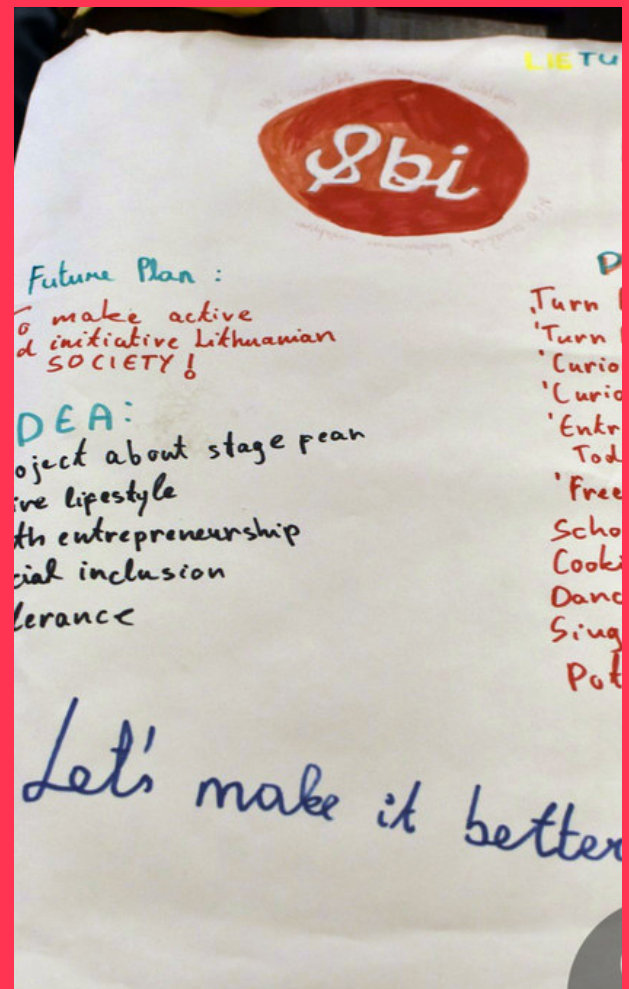 LIETU
&bi
Future Plan :
To make active
d initiative Lithuanian
SOCIETY!
DEA:
oject about stage pear
ive lifestyle
th entrepreneurship
cial inclusion
lerance
P
Turn
'Turn
'Curio
'Curio
'Entr
Tod
'Free
Scho
Cooki
Danc
Sing
Pot
Let's make it better